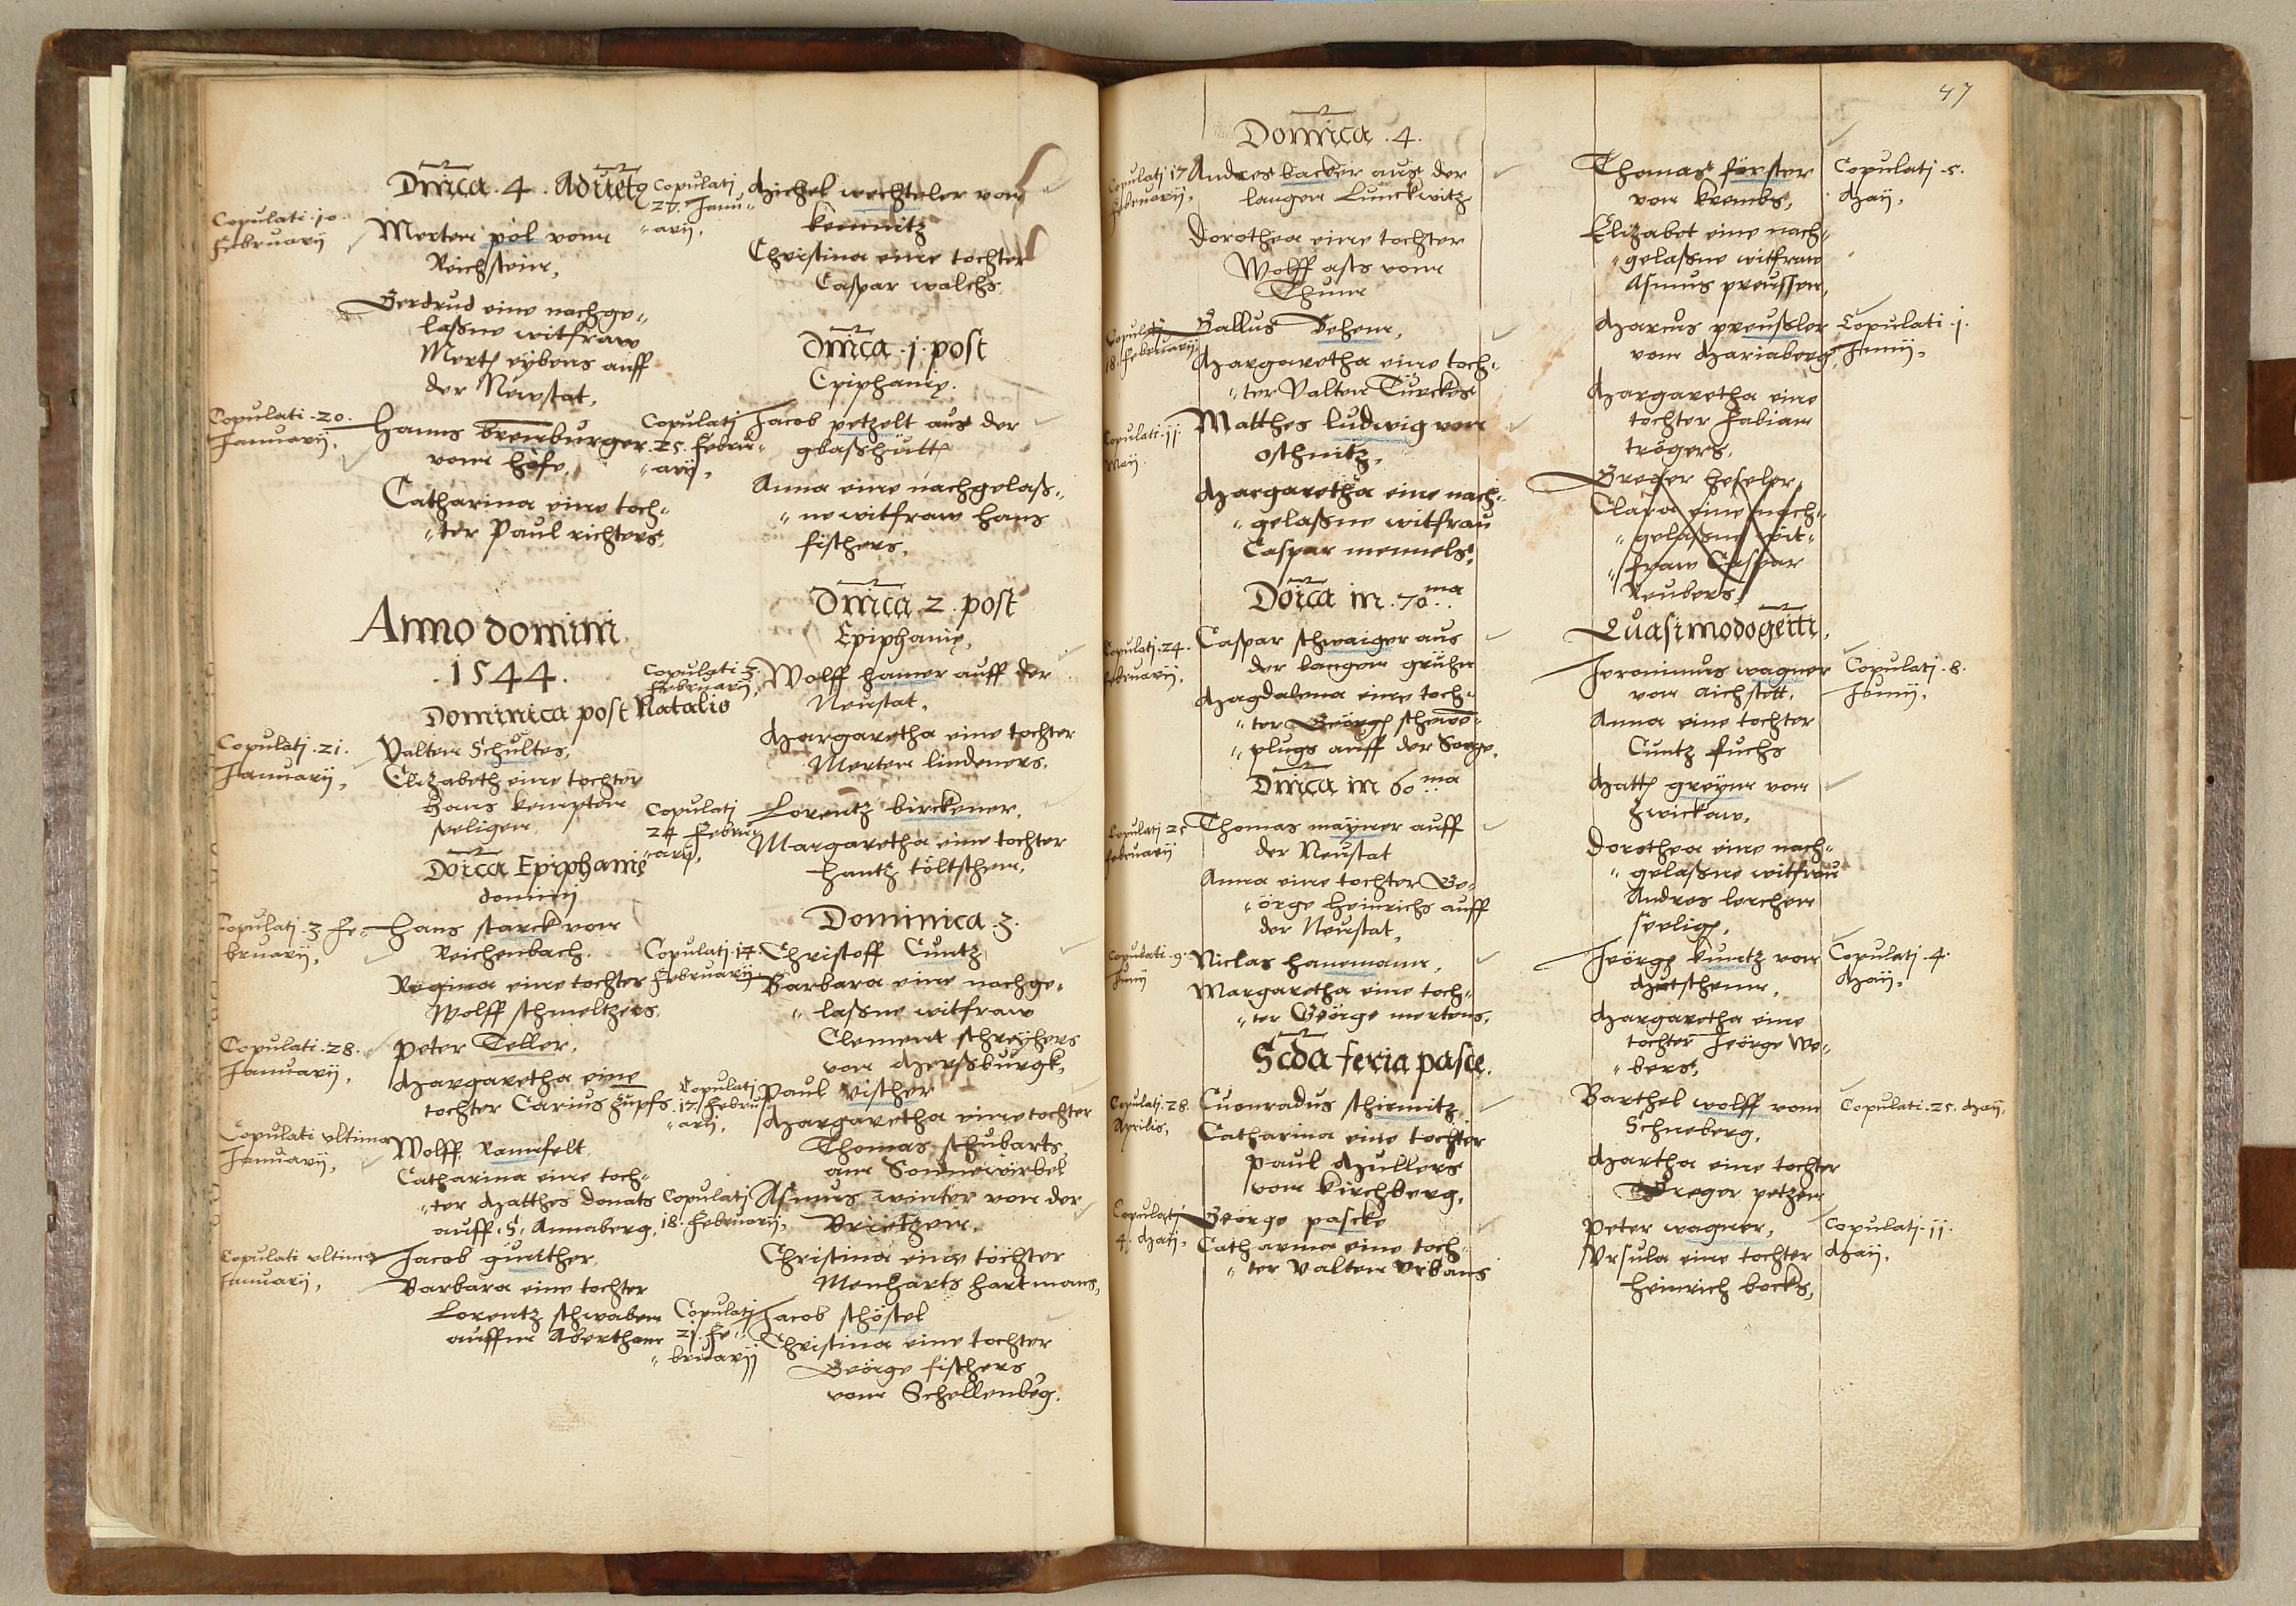 Dnica .4. Aduetꝫ
Copulati .10.
februarij
Merten pol vom
Reichstein,
Gerdrud eine nachge„
laßne witfraw
Mert eybens auff
der Newstat,
Copulati .20.
Januarij,
Hanns brenburger
vom Hofe,
Catharina eine toch„
„ter Paul richters,
Anno domini
.1544.
Dominica post Natalis
Copulatj .21.
Januarij,
Valten Schultes,
Elizabeth eine tochter
Hans kempten
seeligen
Doica Epiphanie
dominj
Copulatj .3 fe„
bruarij,
Hans starck von
Reichenbach.
Regina eine tochter
Wolff schmeltzers,
Copulati .28.
Januarij,
Peter Teller,
Margaretha eine
tochter Carius Zupfs
Copulati vltima
Januarij,
Wolff Ramfelt,
Catharina eine toch„
„ter Matthes donats
auff .S. Annaberg,
Copulati vltima
Januarij,
Jacob guntther,
Barbara eine tochter
Lorentz schwaben
auffm Aberthane
Copulatj
27. Janu„
„arij,
Michel wechteler von
kemnitz
Christina eine tochter
Caspar walchs,
Dnica .j. post
Epiphanie.
Copulatj
25. Febru„
„arij,
Jacob petzelt aus der
glaßhutt
Anna eine nachgelaß„
„ne witfraw hans
fischers,
Dnica 2. post
Epiphanie,
Copulati .3.
Februarij,
Wolff hamer auff der
Neustat,
Margaretha eine tochter
Merten lindeners,
Copulatj
24 Febru„
„arij,
Lorentz birckener,
Margaretha eine tochter
Hantz töltschen,
Dominica .3.
Copulatj .17.
februarij
Christoff Cuntz
Barbara eine nachge„
„laßne witfraw
Clement schreyhers
von Merßburgk,
Copulatj
17. Febru„
„arij,
Paul Vischer
Margaretha eine tochter
Thomas schubarts
am Sonnewirbel
Copulatj
18. februarij,
Asmus winter von der
Brietzen,
Christina eine tochter
Menharts hartmans,
Copulatj
21. Fe„
„bruarij
Jacob schöstel
Christina eine tochter
George fischers
vom Schellenbeg,
47
Domica .4.
Copulatj 17
februarij,
Andres backer aus der
langen Lunckwitz
Dorothea eine tochter
Wolff asts vom
Thum
Copulatj
18. februarij
Gallus Behem,
Margaretha eine toch„
„ter Valten Türckes
Copulati .11.
May.
Matthes ludwig von
oschnitz,
Margaretha eine nach„
„gelaßne witfrau
Caspar mennels,
Doica in .70.ma
Copulatj .24.
februarij,
Caspar schwaiger aus
der langen gruhn
Magdalena eine toch„
„ter Georg schewe„
„plugs auff der Sorge,
Dnica in 60.ma
Copulatj 25
februarij
Thomas mayner auff
der Neustat
Anna eine tochter Ge„
„örge Heinrichs auff
der Neustat,
Copulati .9.
Junij
Niclas hanemann,
Margaretha eine toch„
„ter George mertens,
Scda feria pasce.
Copulatj .28.
Aprilis,
Cuonradus schiemitz,
Catharina eine tochter
Paul Mullers
vom kirchberg,
Copulatj
4. Maij,
George pascke
Catharina eine toch„
„ter Valten Vrbans
Thomas förster
von krembs,
Copulatj .5.
Maij,
Elizabet eine nach„
„gelaßne witfraw
Asmus preussen,
Marcus preußler
vom Mariaberg,
Copulati .j.
Junij,
Margaretha eine
tochter Fabian
trögers,
Greger heseler,
Clara eine nach„
„gelaßne wit„
„fraw Caspar
Neubers,
Quasimodogeiti,
Jeronimus wagner
von aichstett,
Copulatj .8.
Junij,
Anna eine tochter
Cuntz fuchs
Matt greym von
Zwickaw,
Dorothea eine nach„
„gelaßne witfrau
Andres lerchen
seelig,
Jeörg kuntz von
Mutschenn,
Copulatj .4.
Maij,
Margaretha eine
tochter Jeörge We„
„bers,
Barthel wolff vom
Schneberg,
Copulati .25. Maij,
Martha eine tochter
Greger petzen
Peter wagner,
Copulatj .11.
Maij,
Vrsula eine tochter
Heinrich bocks,